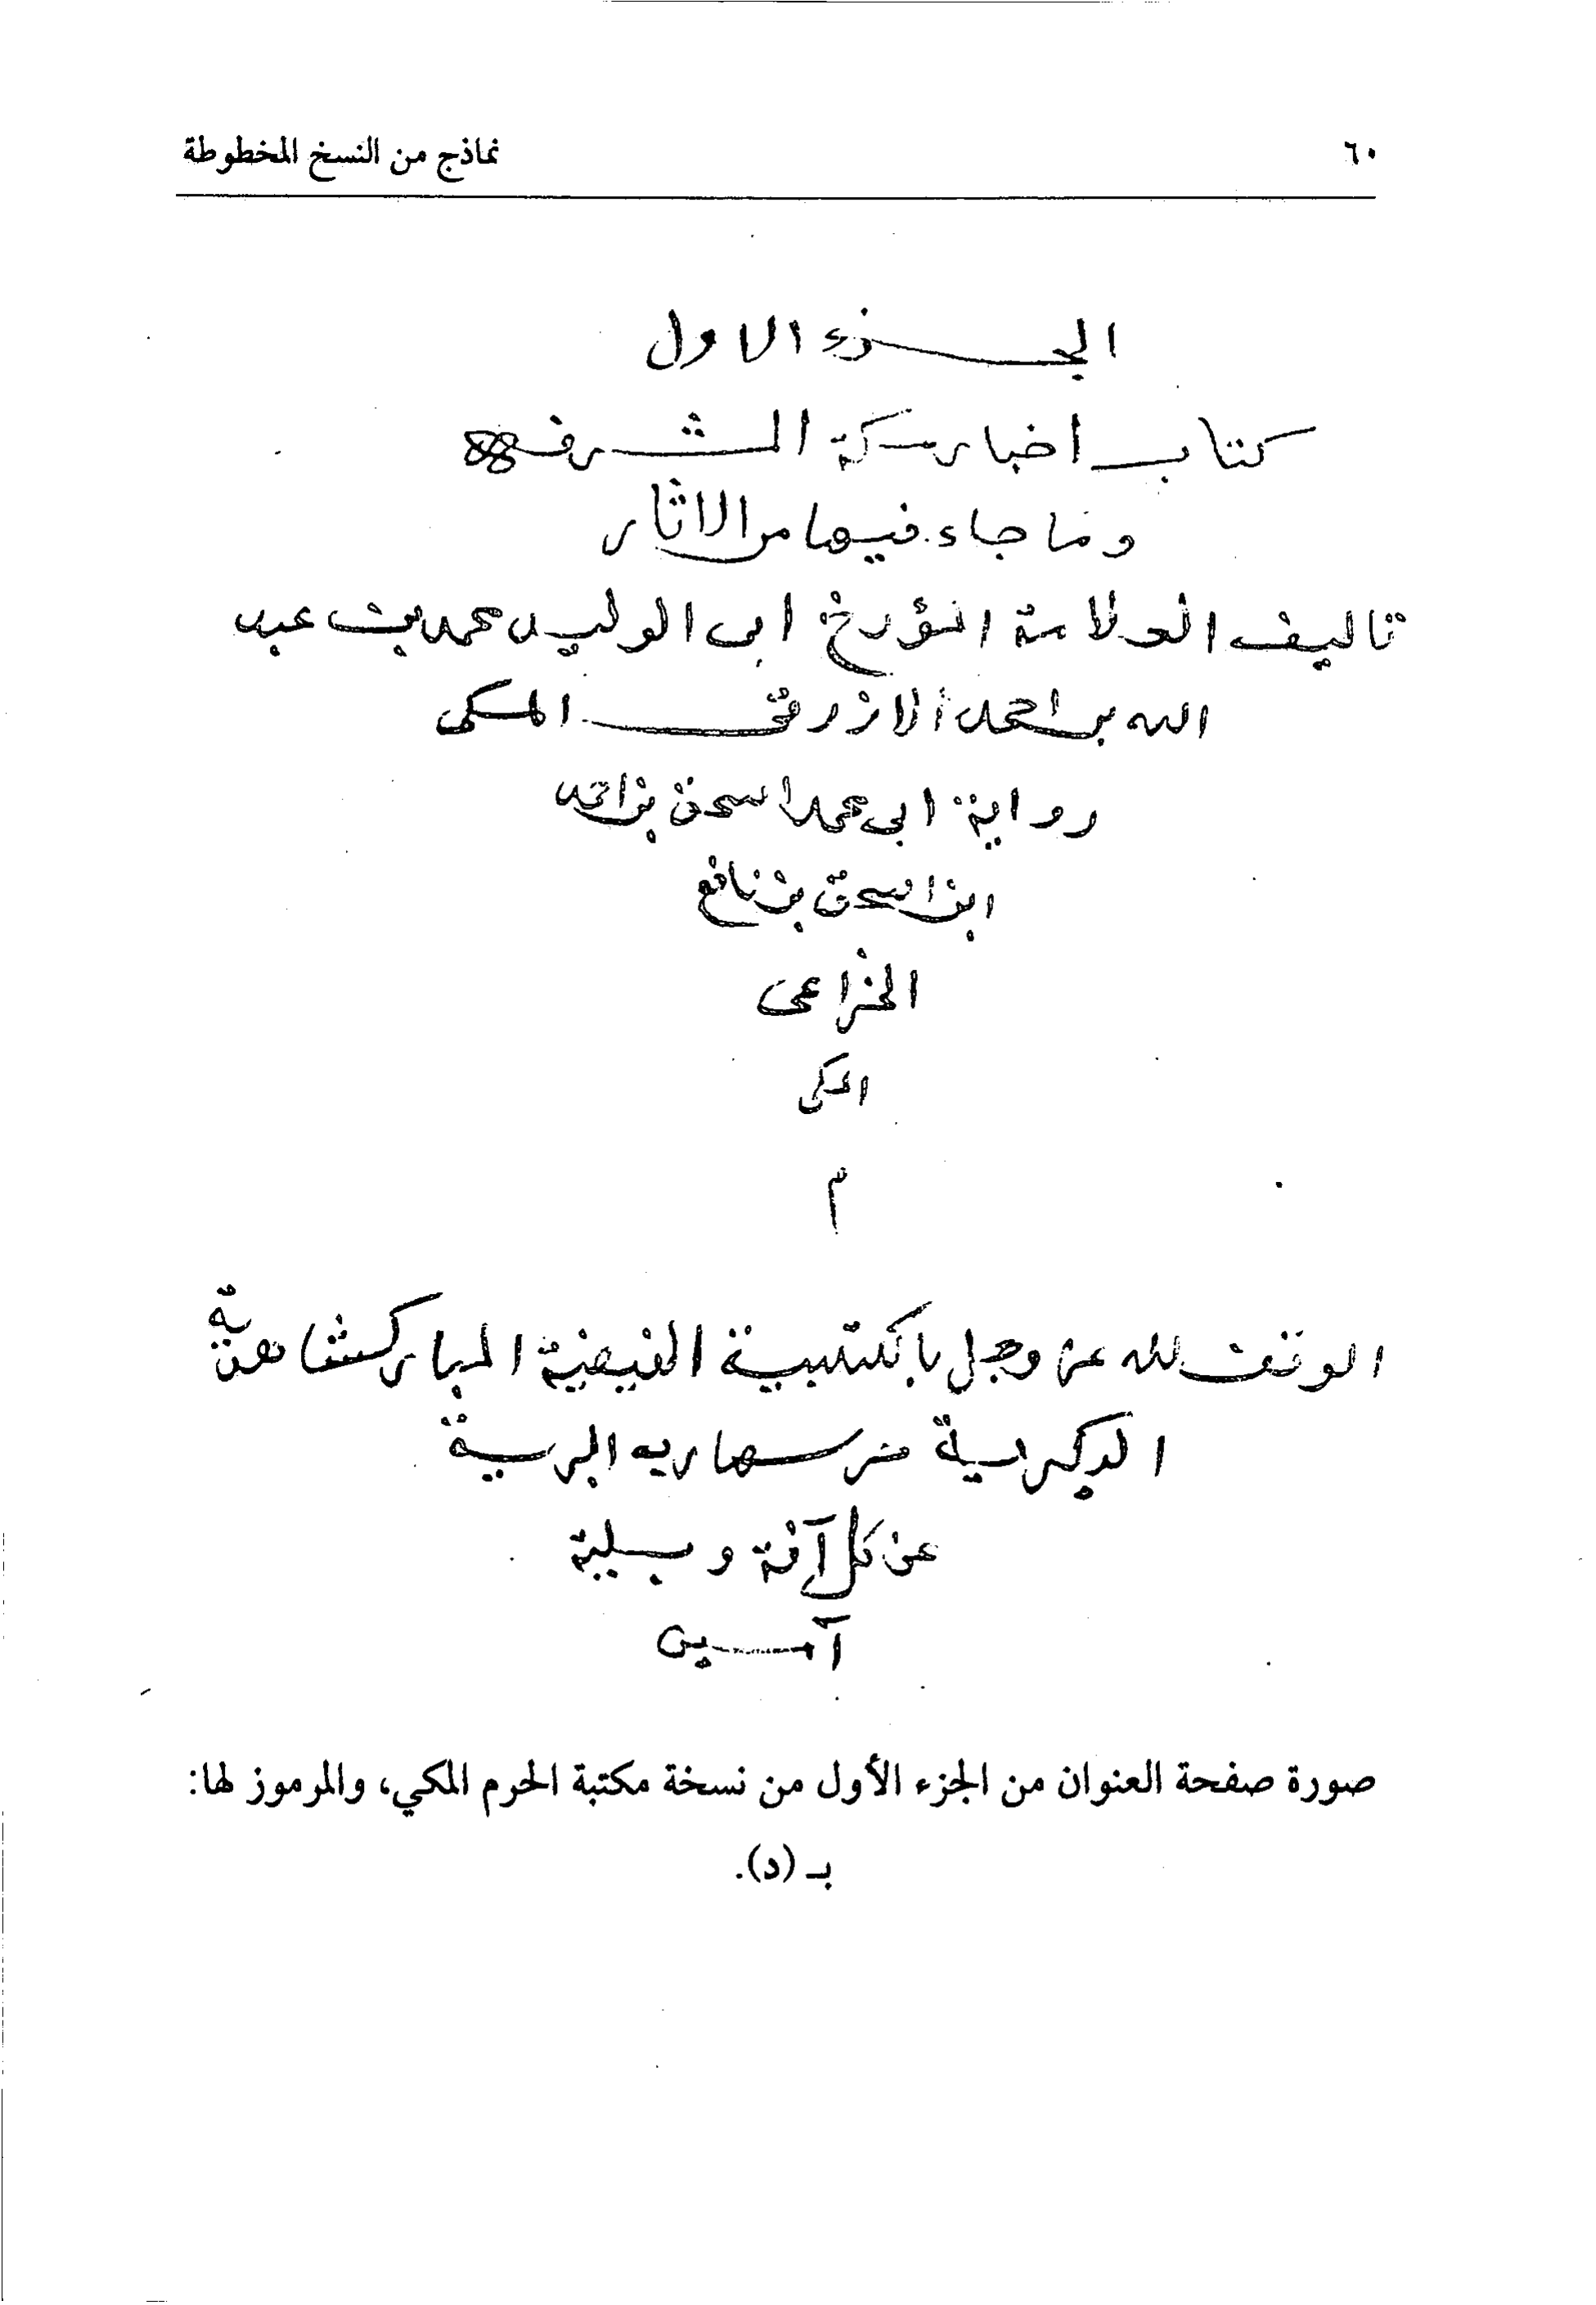 ٦٠ نماذج من النسخ المخطوطة
الجزء الاول
كتاب اخبار مكة المشرفه
وما جاء فيها من الاثار
تاليف العلامة المؤرخ ابى الوليد محمد بن عبد
الله بن احمد الازرقى المكى
رواية ابى محمد اسحق بن احمد
ابن اسحق بن نافع
الخزاعى
المكى
م
الوقف لله عز وجل بالكتبية الفيضية المباركشاهية
الدكبراسية حرسها ربه البرية
عن كل آفة وبلية
آمين
صورة صفحة العنوان من الجزء الأول من نسخة مكتبة الحرم المكي، والمرموز لها:
بـ (د).